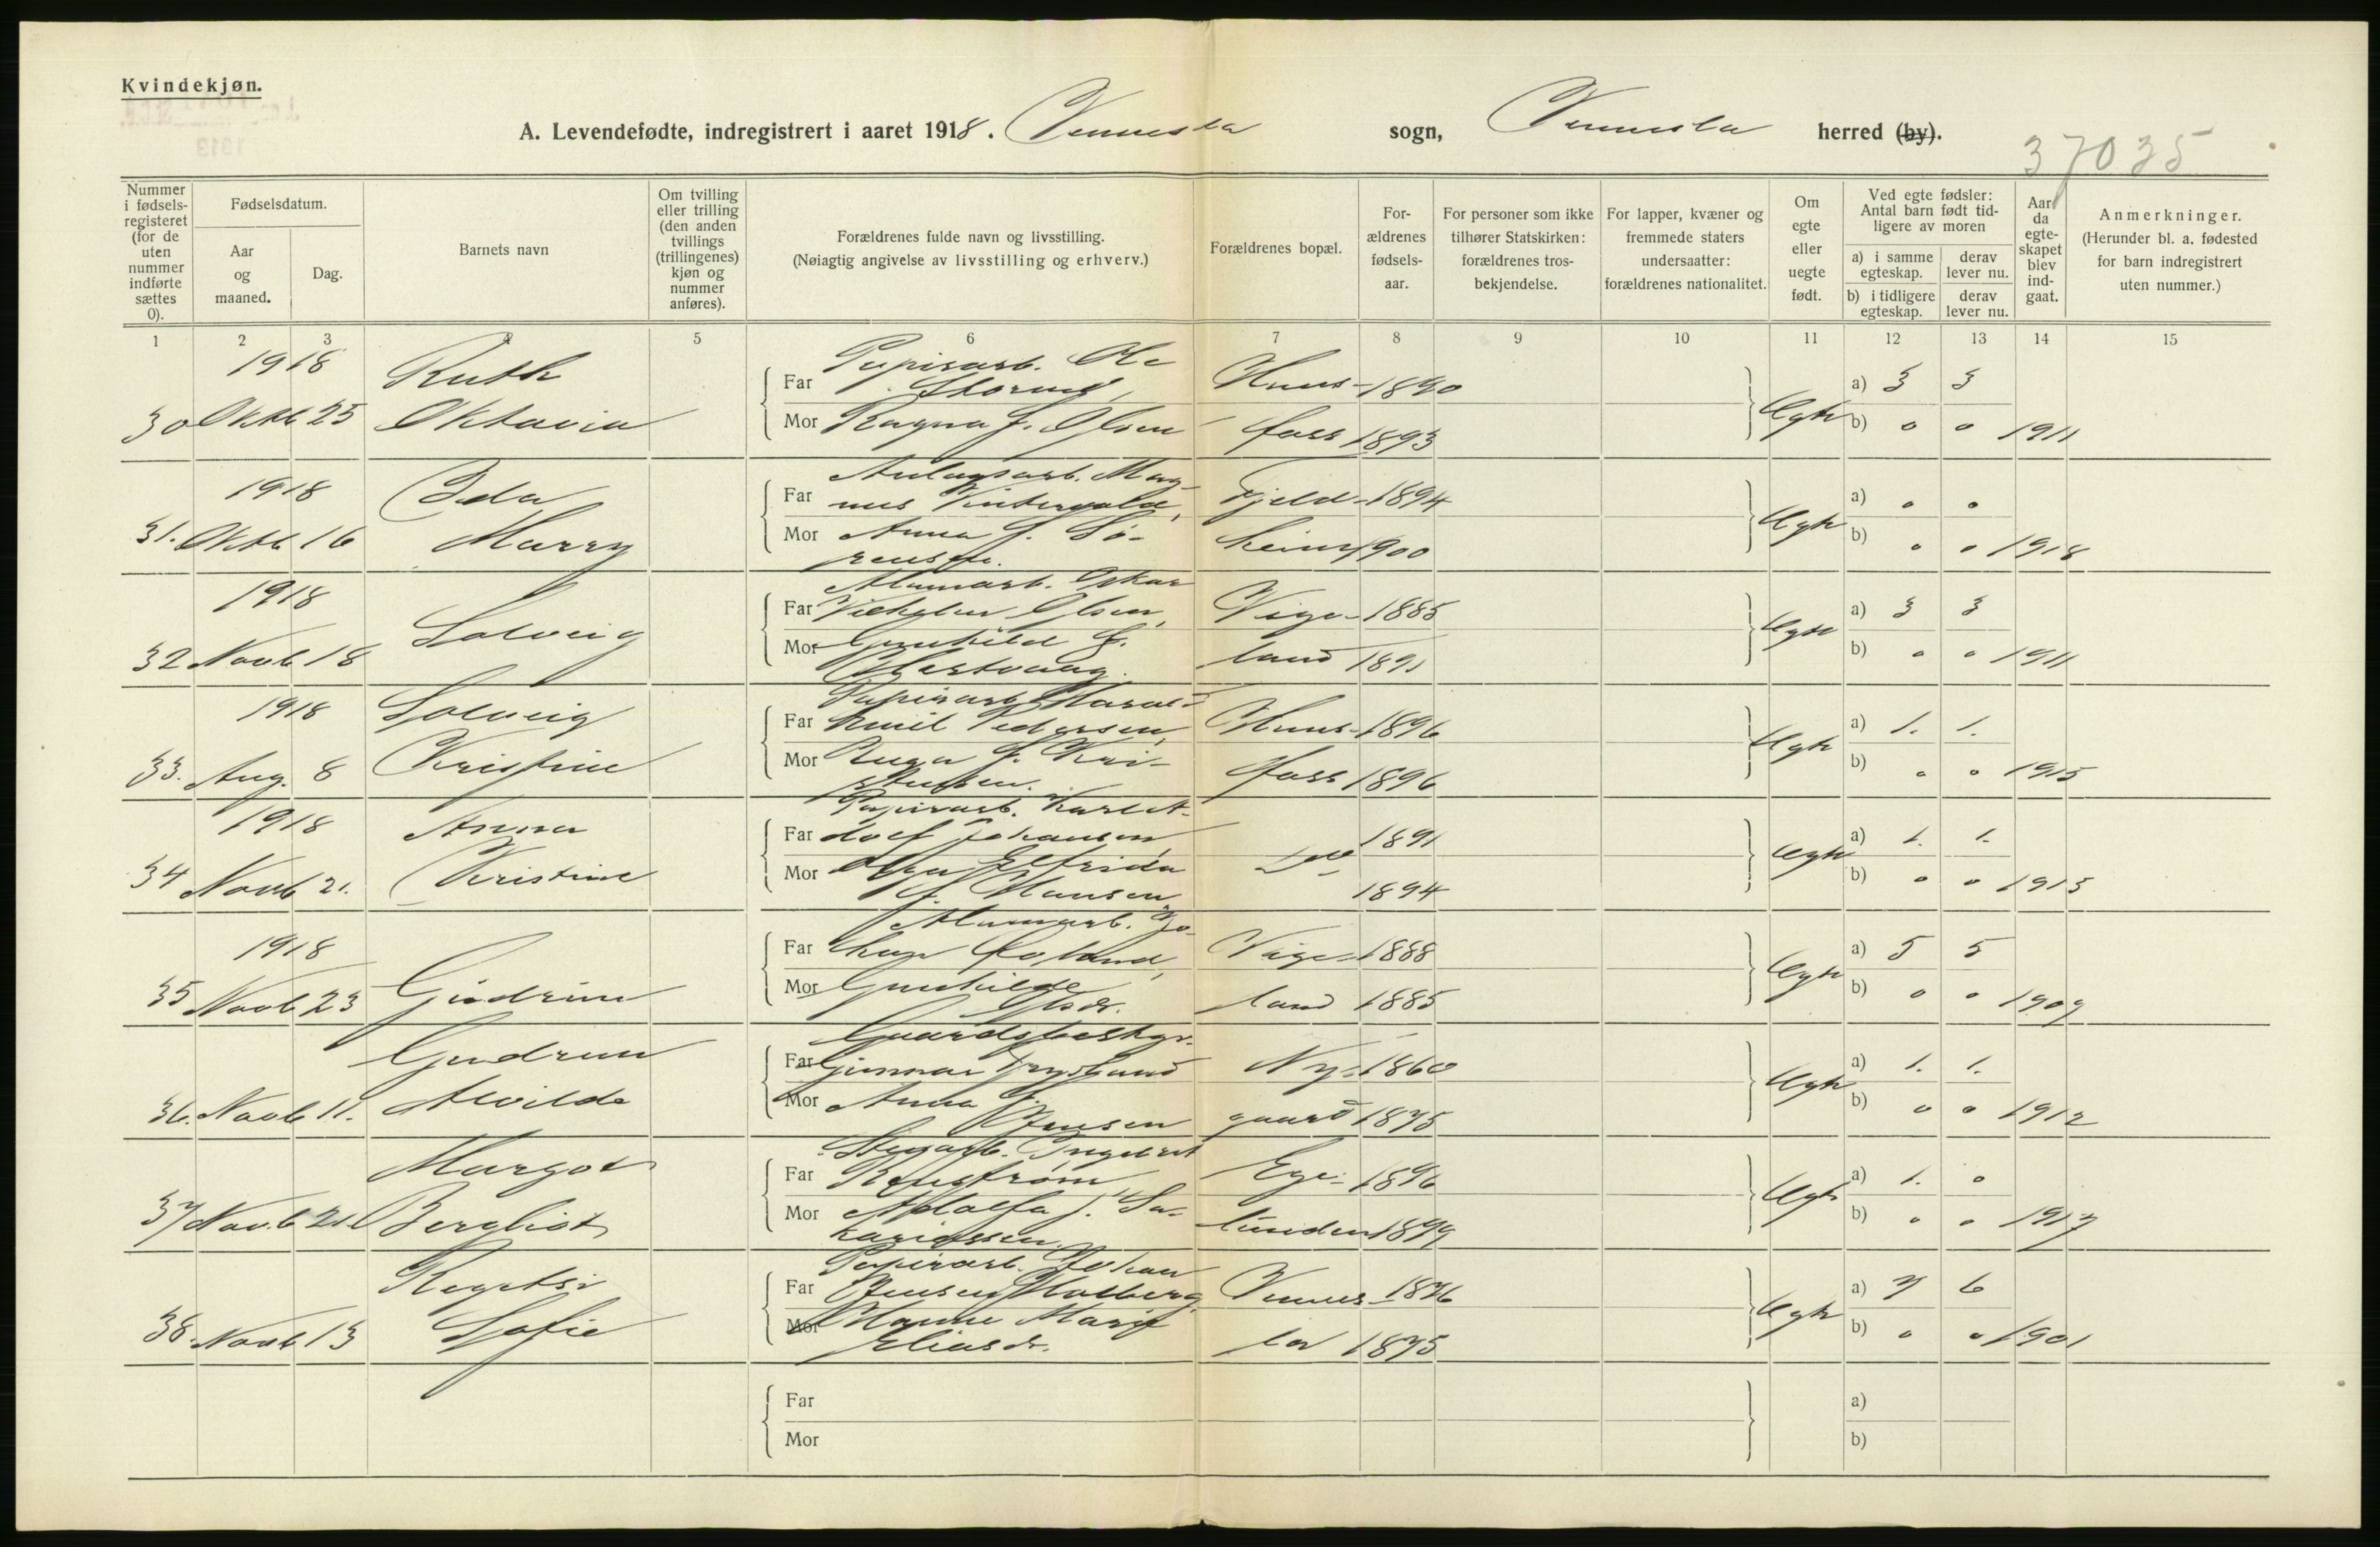 Kvindekjøn.
A. Levendefødte, indregistrert i aaret 1918. Vennesla sogn, Vennesla herred (by).
37035
Nummer i fødselsregisteret (for de uten nummer indførte sættes 0).
Fødselsdatum.
Aar og maaned.
Dag.
Barnets navn
Om tvilling eller trilling (den anden tvillings (trillingenes) kjøn og nummer anføres).
Forældrenes fulde navn og livsstilling.
(Nøiagtig angivelse av livsstilling og erhverv.)
Forældrenes bopæl.
Forældrenes fødselsaar.
For personer som ikke tilhører Statskirken: forældrenes trosbekjendelse.
For lapper, kvæner og fremmede staters undersaatter: forældrenes nationalitet.
Om egte eller uegte født.
Ved egte fødsler: Antal barn født tidligere av moren
a) i samme egteskap.
derav lever nu.
b) i tidligere egteskap.
derav lever nu.
Aar da egteskapet blev indgaat.
Anmerkninger.
(Herunder bl. a. fødested for barn indregistrert uten nummer.)
1 2 3 4 5 6 7 8 9 10 11 12 13 14 15
1918 Ruth Papirarb. Ole
Far Huns- 1890 a) 3 3
30 Oktb 25 Oktavia Mor Ragna f. Olsen foss 1893 Egte b) 0 0 1911
1918 Ida Anlægsarb. Mag-
Far nus Fjeld- 1894 a) 0 0
31. Oktb 16 Marry Mor Anna f. Sø- heim 1900 Egte b) 0 0 1918
rensen.
1918 Alumarb. Oskar
Far Vilhelm Olsen, Vige- 1885 a) 3 3
Solveig
32 Novb 18 Mor Gunhild f. land 1891 Egte b) 0 0 1911
1918 Solveig Papirarb. Harald
Far Emil Pedersen, Huns- 1896 a) 1. 1.
33. Aug. 8 Kristine Mor f. Kri- foss 1896 Egte b) 0 0 1915
stensen.
1918 Anna Papirarb. Karl A-
Far dolf Johansen 1891 a) 1. 1.
34 Novb 21. Kristine Mor Olga Elfrida Do Egte b) 0 0 1913
f. Hansen 1894
1918 Alumarb. Jo-
Far han Vige- 1888 a) 5 5
35 Novb 23 Gudrun Mor Gunhilde land 1885 Egte b) 0 0 1909
Olsdr.
Gudrun Gaardsbestyr.
Far Gunnar Ny- 1860 a) 1. 1.
36. Novb 11. Alvilde Mor Anna f. gaard 1875 Egte b) 0 0 1912
Jensen
Margot Ingebret
Far Ege- 1896 a) 1. 0
37 Novb 21 Bergliot Mor Adolfa f. Sa- 1899 Egte b) 0 0 1917
kariassen.
Papirarb. Johan
Far Jensen Holberg, Vennes- 1876 a) 7 6
38. Novb 13 Sofie Mor Hanne Marie la 1875 Egte b) 0 0 1901
Eliasdr.
Far a)
Mor b)